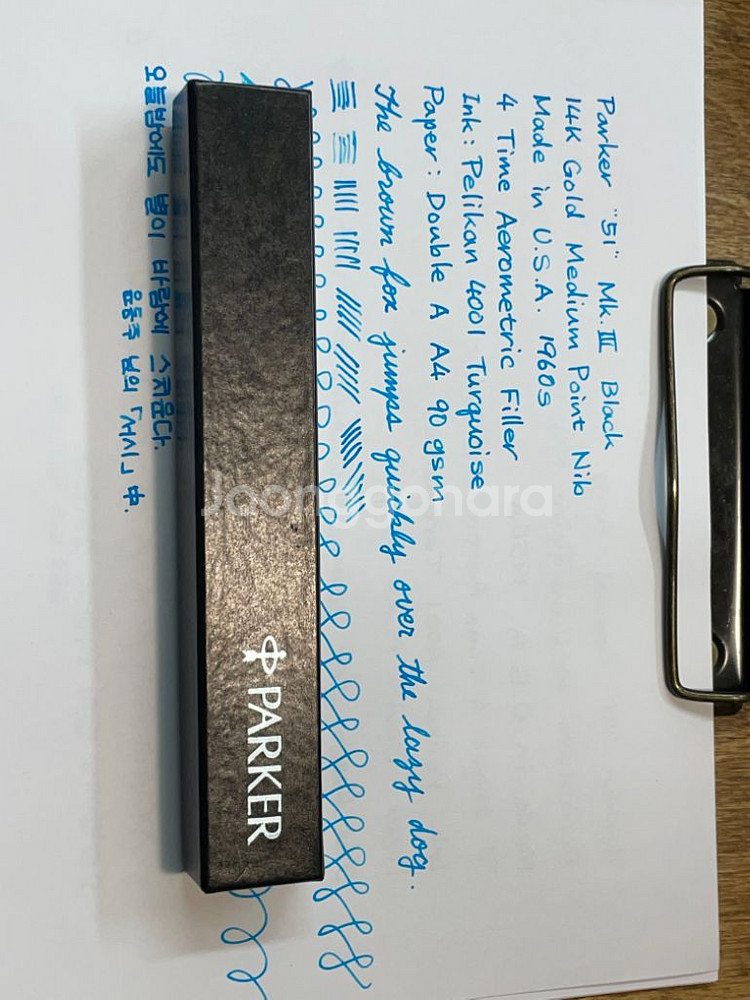 Parker "51" Mk. III Black
14K Gold Medium Point Nib
Made in U.S.A. 1960s
4 Time Aerometric Filler
Ink : Pelikan 4001 Turquoise
Paper : Double A A4 90 gsm
The brown fox jumps quickly over the lazy dog.
PARKER
오늘밤에도 별이 바람에 스치운다.
윤동주 님의 「서시」 中.
Joonggonara